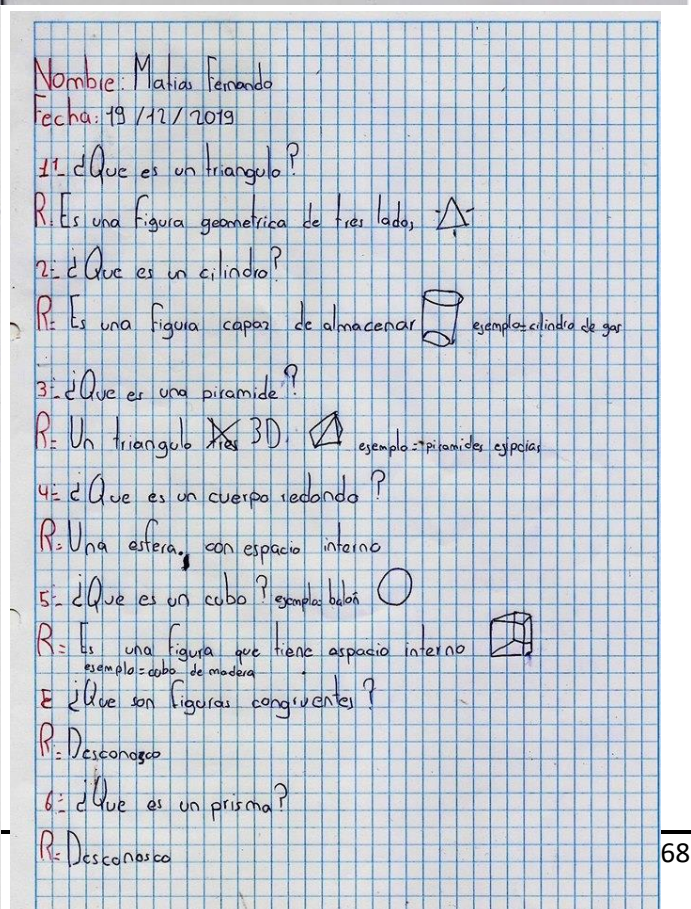 Nombre: Matias Fernando
Fecha: 19/12/2019
1- ¿Que es un triangulo?
R. Es una figura geometrica de tres lados
2- ¿Que es un cilindro?
R= Es una figura capaz de almacenar ejemplo= cilindro de gas
3- ¿Que es una piramide?
R= Un triangulo 3D. ejemplo= piramides egipcias
4= ¿Que es un cuerpo redondo?
R= Una esfera, con espacio interno
5- ¿Que es un cubo? ejemplo= balon
R= Es una figura que tiene aspacio interno
ejemplo= cubo de madera
E ¿Que son figuras congruentes?
R= Desconosco
6= ¿Que es un prisma?
R= Desconosco
68